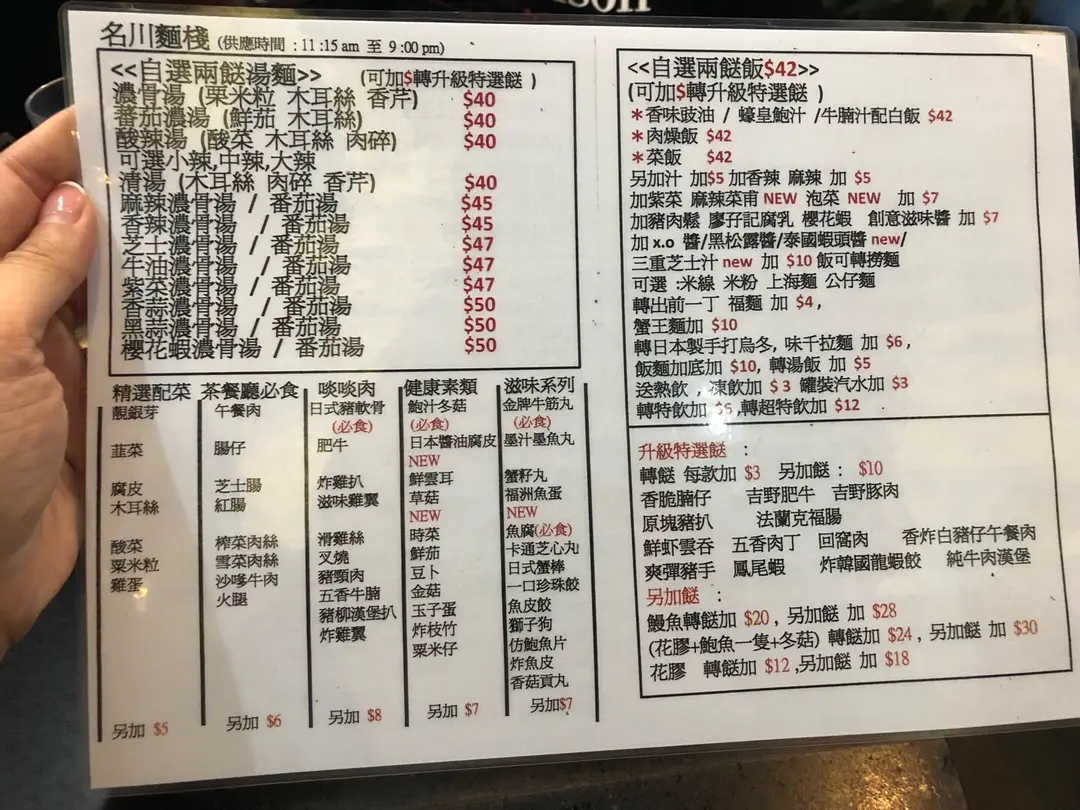 名川麵棧 (供應時間 : 11 :15 am 至 9 :00 pm)
<<自選兩餸湯麵>> (可加$轉升級特選餸 )
濃骨湯 (栗米粒 木耳絲 香芹) $40
番茄濃湯 (鮮茄 木耳絲) $40
酸辣湯 (酸菜 木耳絲 肉碎) $40
可選小辣,中辣,大辣
清湯 (木耳絲 肉碎 香芹) $40
麻辣濃骨湯 / 番茄湯 $45
香辣濃骨湯 / 番茄湯 $45
芝士濃骨湯 / 番茄湯 $47
牛油濃骨湯 / 番茄湯 $47
紫菜濃骨湯 / 番茄湯 $47
香蒜濃骨湯 / 番茄湯 $50
黑蒜濃骨湯 / 番茄湯 $50
櫻花蝦濃骨湯 / 番茄湯 $50
精選配菜
靚銀芽
韮菜
腐皮
木耳絲
酸菜
粟米粒
雞蛋
另加 $5
茶餐廳必食
午餐肉
腸仔
芝士腸
紅腸
榨菜肉絲
雪菜肉絲
沙嗲牛肉
火腿
另加 $6
啖啖肉
日式豬軟骨
(必食)
肥牛
炸雞扒
滋味雞翼
滑雞絲
叉燒
豬頸肉
五香牛腩
豬柳漢堡扒
炸雞翼
另加 $8
健康素類
鮑汁冬菇
(必食)
日本醬油腐皮
NEW
鮮雲耳
草菇
NEW
時菜
鮮茄
豆卜
金菇
玉子蛋
炸枝竹
粟米仔
另加 $7
滋味系列
金牌牛筋丸
(必食)
墨汁墨魚丸
蟹籽丸
福洲魚蛋
NEW
魚腐(必食)
卡通芝心丸
日式蟹棒
一口珍珠餃
魚皮餃
獅子狗
仿鮑魚片
炸魚皮
香菇貢丸
另加$7
<<自選兩餸飯$42>>
(可加$轉升級特選餸 )
*香味豉油 / 蠔皇鮑汁 /牛腩汁配白飯 $42
*肉燥飯 $42
*菜飯 $42
另加汁 加$5 加香辣 麻辣 加 $5
加紫菜 麻辣菜甫 NEW 泡菜 NEW 加 $7
加豬肉鬆 廖孖記腐乳 櫻花蝦 創意滋味醬 加 $7
加 x.o 醬/黑松露醬/泰國蝦頭醬 new/
三重芝士汁 new 加 $10 飯可轉撈麵
可選 :米線 米粉 上海麵 公仔麵
轉出前一丁 福麵 加 $4 ,
蟹王麵加 $10
轉日本製手打烏冬, 味千拉麵 加 $6 ,
飯麵加底加 $10, 轉湯飯 加 $5
送熱飲 , 凍飲加 $ 3 罐裝汽水加 $3
轉特飲加 $6 ,轉超特飲加 $12
升級特選餸 :
轉餸 每款加 $3 另加餸 : $10
香脆腩仔 吉野肥牛 吉野豚肉
原塊豬扒 法蘭克福腸
鮮虾雲吞 五香肉丁 回窩肉 香炸白豬仔午餐肉
爽彈豬手 鳳尾蝦 炸韓國龍蝦餃 純牛肉漢堡
另加餸 :
鰻魚轉餸加 $20 , 另加餸 加 $28
(花膠+鮑魚一隻+冬菇) 轉餸加 $24 , 另加餸 加 $30
花膠 轉餸加 $12 ,另加餸 加 $18